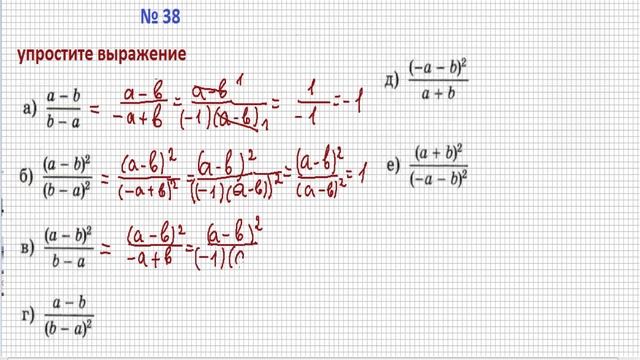 № 38
упростите выражение
а) (a − b)/(b − a) = (a−b)/(−a+b) = (a−b)^1/((−1)(a−b)_1) = 1/−1 = −1
б) (a − b)²/(b − a)² = (a−b)²/(−a+b)² = (a−b)²/((−1)(a−b))² = (a−b)²/(a−b)² = 1
в) (a − b)²/(b − a) = (a−b)²/(−a+b) = (a−b)²/(−1)(
г) (a − b)/(b − a)²
д) (−a − b)²/(a + b)
е) (a + b)²/(−a − b)²